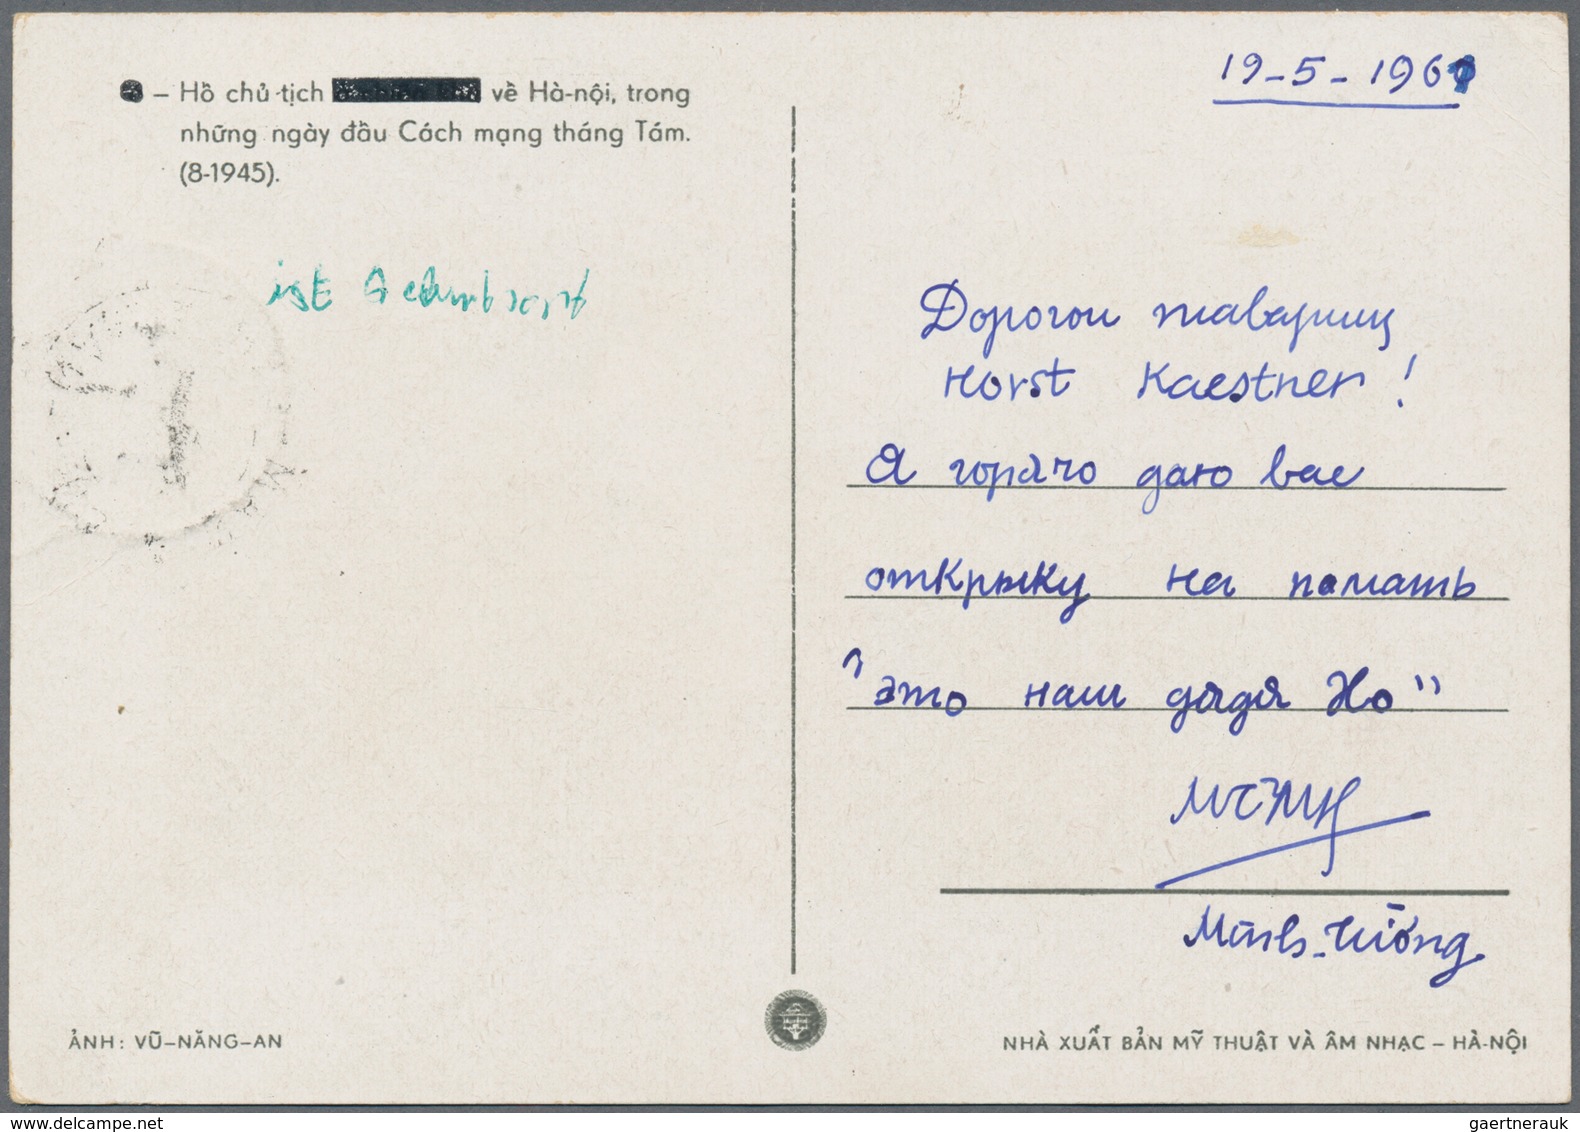 – Hồ chủ tịch về Hà-nội, trong
những ngày đầu Cách mạng tháng Tám.
(8-1945).
ist
19-5-1961
Дорогои таварищ
Horst Kaestner!
Я горячо даю вас
открыку на память
"это наш дядя Хо"
Minh-Tường
ẢNH: VŨ-NĂNG-AN
NHÀ XUẤT BẢN MỸ THUẬT VÀ ÂM NHẠC – HÀ-NỘI
gaertnerauk